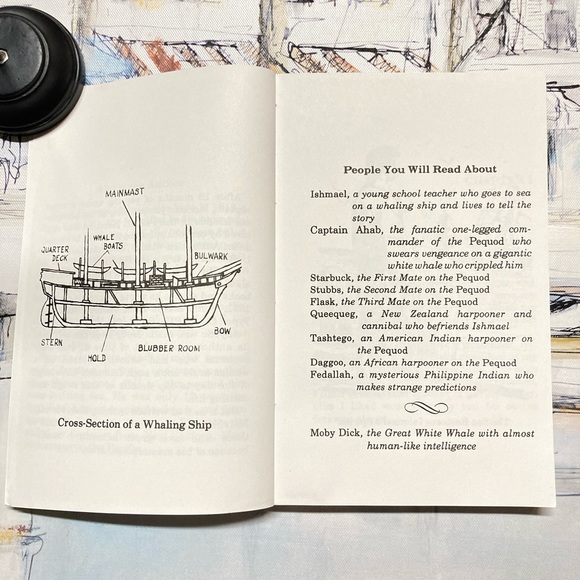 MAINMAST
QUARTER
DECK
WHALE
BOATS
BULWARK
BOW
STERN
BLUBBER ROOM
HOLD
Cross-Section of a Whaling Ship
People You Will Read About
Ishmael, a young school teacher who goes to sea
on a whaling ship and lives to tell the
story
Captain Ahab, the fanatic one-legged com-
mander of the Pequod who
swears vengeance on a gigantic
white whale who crippled him
Starbuck, the First Mate on the Pequod
Stubbs, the Second Mate on the Pequod
Flask, the Third Mate on the Pequod
Queequeg, a New Zealand harpooner and
cannibal who befriends Ishmael
Tashtego, an American Indian harpooner on
the Pequod
Daggoo, an African harpooner on the Pequod
Fedallah, a mysterious Philippine Indian who
makes strange predictions
Moby Dick, the Great White Whale with almost
human-like intelligence